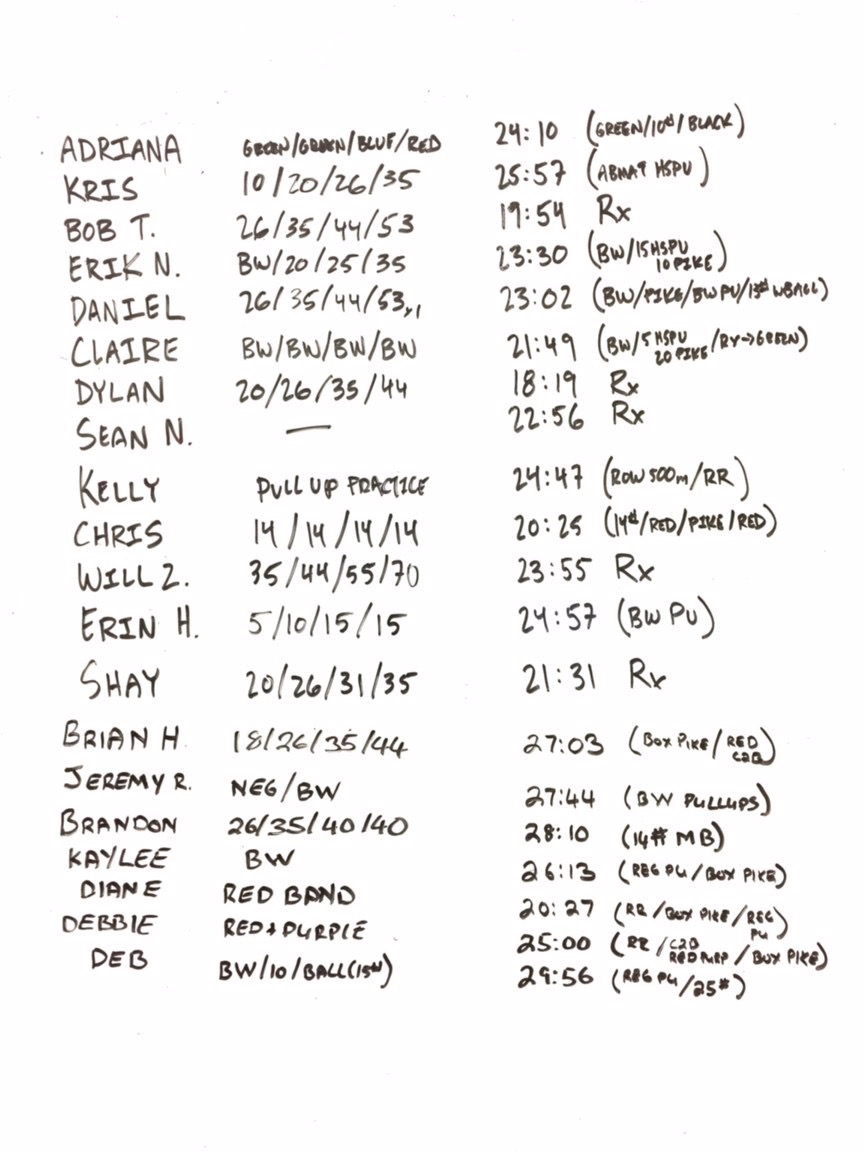 ADRIANA GREEN/GREEN/BLUE/RED 24:10 (GREEN/10#/BLACK)
KRIS 10/20/26/35 25:57 (ABMAT HSPU)
BOB T. 26/35/44/53 19:54 Rx
ERIK N. BW/20/25/35 23:30 (BW/15 HSPU 10 PIKE)
DANIEL 26/35/44/53,,1 23:02 (BW/PIKE/BW PU/13# WBALL)
CLAIRE BW/BW/BW/BW 21:49 (BW/5 HSPU 20 PIKE/RX→GREEN)
DYLAN 20/26/35/44 18:19 Rx
SEAN N. — 22:56 Rx
KELLY PULL UP PRACTICE 24:47 (ROW 500m/RR)
CHRIS 14/14/14/14 20:25 (14#/RED/PIKE/RED)
WILL Z. 35/44/55/70 23:55 Rx
ERIN H. 5/10/15/15 24:57 (BW PU)
SHAY 20/26/31/35 21:31 Rx
BRIAN H 18/26/35/44 27:03 (BOX PIKE/RED C2B)
JEREMY R. NEG/BW 27:44 (BW PULLUPS)
BRANDON 26/35/40/40 28:10 (14# MB)
KAYLEE BW 26:13 (REG PU/BOX PIKE)
DIANE RED BAND 20:27 (RR/BOX PIKE/REG PU)
DEBBIE RED+PURPLE 25:00 (RR/C2B RED PURP/BOX PIKE)
DEB BW/10/BALL(15#) 29:56 (REG PU/25#)